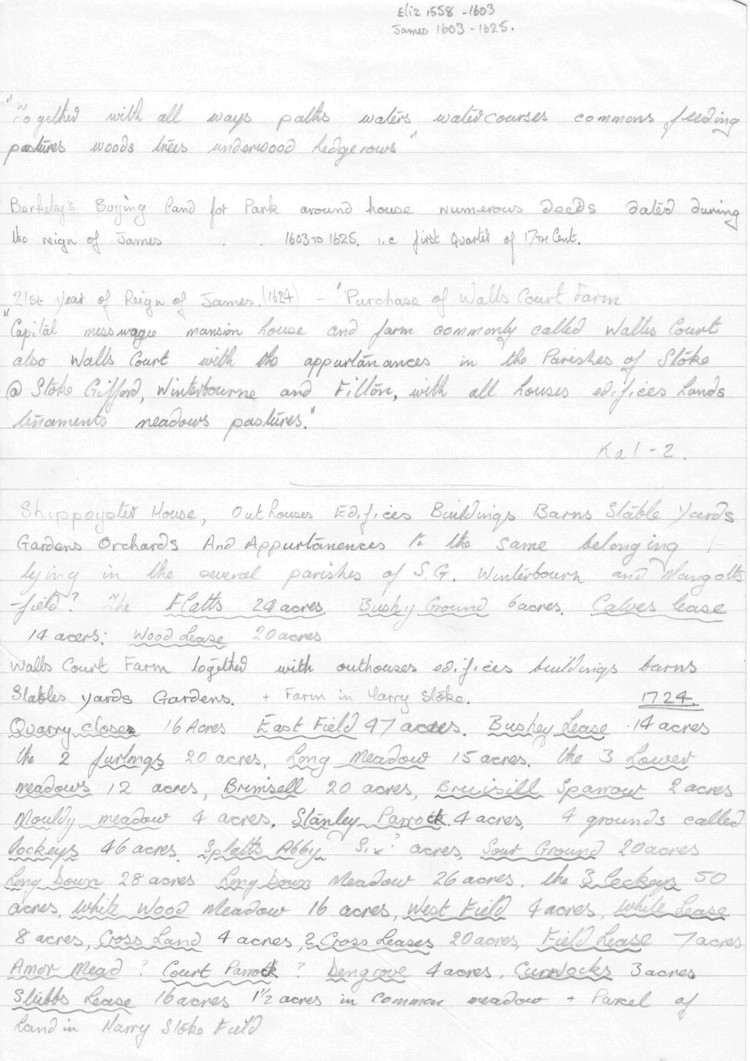 Eliz 1558 - 1603
James 1603 - 1625.
"Together with all ways paths waters watercourses commons, feeding
pastures woods trees underwood hedgerows"
Berkeley's Buying land for Park around house numerous deeds dated during
the reign of James . . 1603 TO 1625. i.e first Quarter of 17TH Cent.
21st year of Reign of James. (1624) - "Purchase of Walls Court Farm
"Capital messwague mansion house and farm commonly called Wallis Court
also Walls Court with the appurtanances in the Parishes of Stoke
@ Stoke Gifford, Winterbourne and Filton, with all houses edifices Lands
tinaments meadows pastures."
Ka 1 - 2.
Shippoyster House, Outhouses Edifices Buildings Barns Stable Yards
Gardens Orchards And Appurtanences to the same belonging
lying in the several parishes of S.G. Winterbourn and Mangotts
-field? The Flatts 24 acres, Bushy Ground 6 acres, Calves lease
14 acers: Wood Lease 20 acres
Walls Court Farm together with outhouses edifices buildings barns
Stables yards Gardens. + Farm in Harry Stoke. 1724.
Quarry closes 16 Acres East Field 47 acres. Bushey Lease 14 acres
the 2 furlongs 20 acres, Long Meadow 15 acres. the 3 Lower
meadows 12 acres, Brimsell 20 acres, Sparrow 2 acres
Mouldy meadow 4 acres. Stanley Parrock 4 acres, 4 grounds called
Lockeys 46 acres. Spletts Abby Six? acres, Sour Ground 20 acres
Long Down 28 acres Long Down Meadow 26 acres. the 3 Lockeys 50
acres, White Wood Meadow 16 acres, West Field 4 acres, White Lease
8 acres, Cross Land 4 acres, 2 Cross Leases 20 acres, Field Lease 7 acres
Amor Mead? Court Parrock? Dengrove 4 acres, Curwocks 3 acres
Stubbs Lease 16 acres 1½ acres in common meadow + Parcel of
Land in Harry Stoke Field